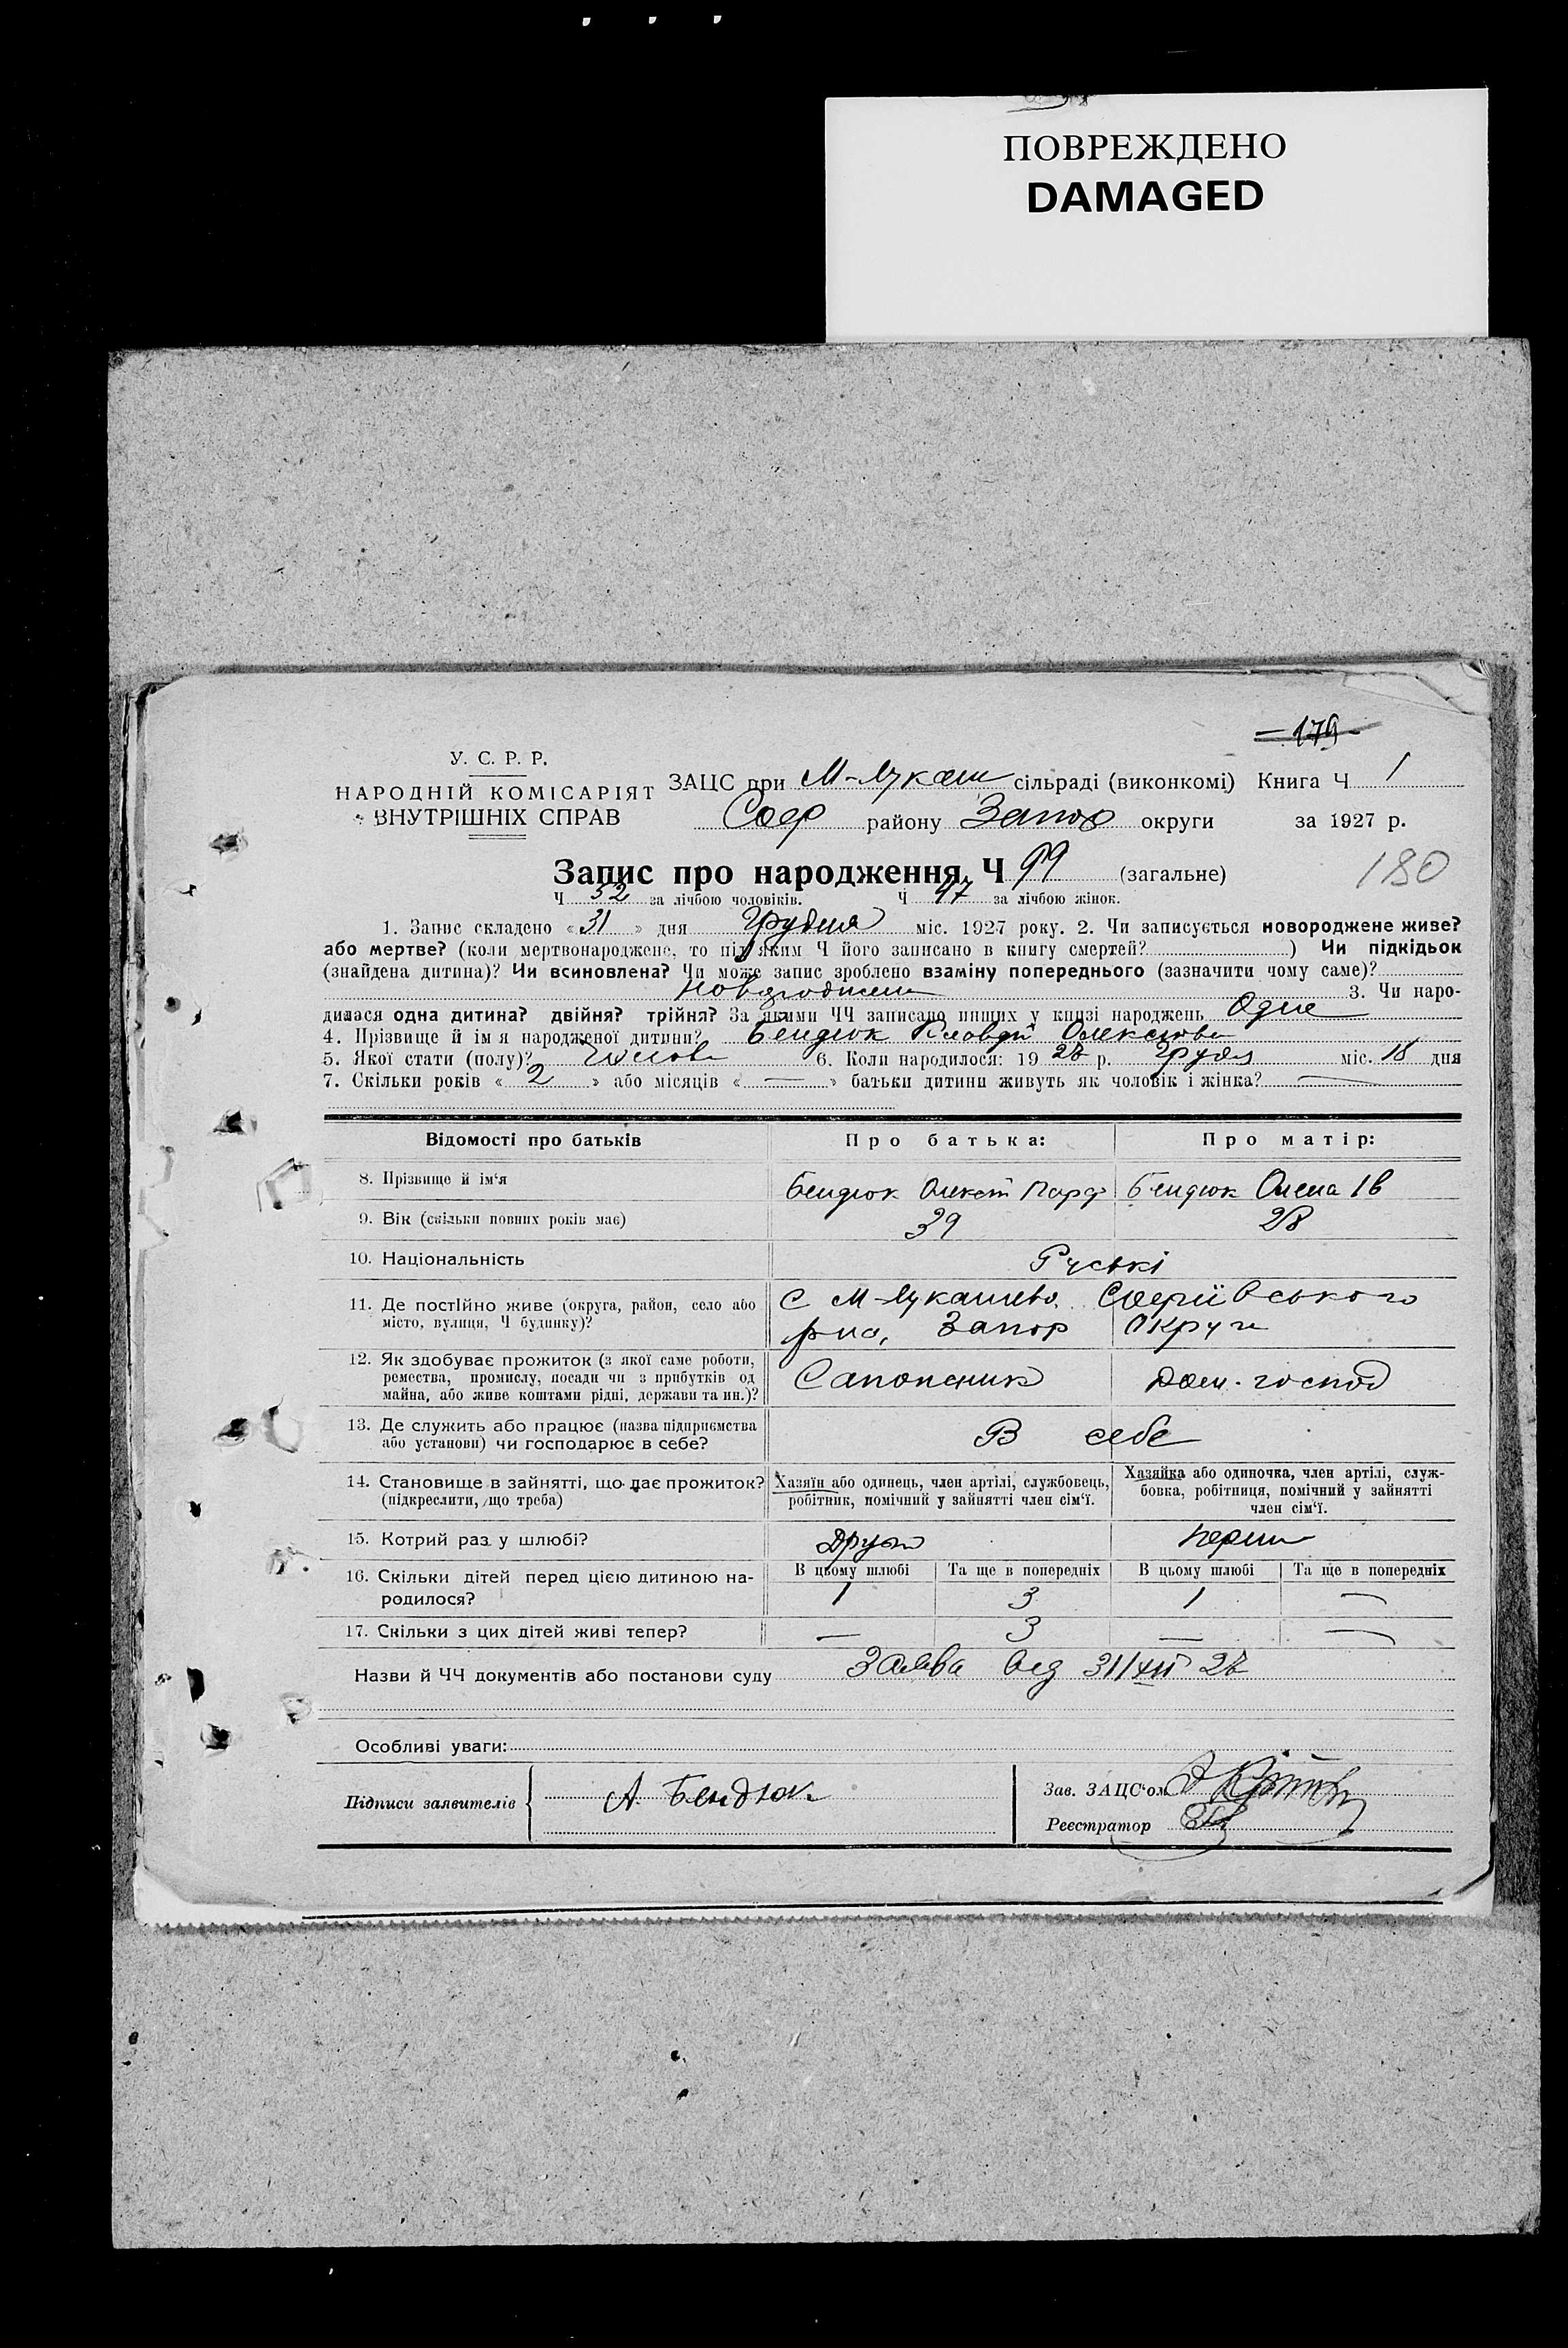 ПОВРЕЖДЕНО
DAMAGED
179
У. С. Р. Р.
НАРОДНІЙ КОМІСАРІЯТ
ВНУТРІШНІХ СПРАВ
ЗАЦС при М-Лукаш сільраді (виконкомі) Книга Ч 1
Соф району Запор округи за 1927 р.
180
Запис про народження Ч 99 (загальне)
Ч 52 за лічбою чоловіків. Ч 47 за лічбою жінок.
1. Запис складено «31» дня Грудня міс. 1927 року. 2. Чи записується новороджене живе?
або мертве? (коли мертвонароджене, то під яким Ч його записано в книгу смертей? ) Чи підкідьок
(знайдена дитина)? Чи всиновлена? Чи може запис зроблено взаміну попереднього (зазначити чому саме)?
3. Чи наро-
дилася одна дитина? двійня? трійня? За якими ЧЧ записано инших у книзі народжень Одне
4. Прізвище й ім я народженої дитини? Бендюк
5. Якої стати (полу)? 6. Коли народилося: 19 р. міс. 18 дня
7. Скільки років «2» або місяців «—» батьки дитини живуть як чоловік і жінка? —
Відомості про батьків Про батька: Про матір:
8. Прізвище й ім‘я Бендюк Олекст Парф Бендюк Олена Ів
9. Вік (скільки повних років має) 39 28
10. Національність Руські
11. Де постійно живе (округа, район, село або
місто, вулиця, Ч будинку)?
с М-Лукашево. Софиївського
р-на, Запор Округи
12. Як здобуває прожиток (з якої саме роботи,
ремества, промислу, посади чи з прибутків од
майна, або живе коштами рідні, держави та ин.)?
Сапожник Дом. господ
13. Де служить або працює (назва підприємства
або установи) чи господарює в себе?
В себе
14. Становище в зайнятті, що дає прожиток?
(підкреслити, що треба)
Хазяїн або одинець, член артілі, службовець,
робітник, помічний у зайнятті член сім‘ї.
Хазяйка або одиночка, член артілі, служ-
бовка, робітниця, помічний у зайнятті
член сім‘ї.
15. Котрий раз у шлюбі? Други перши
16. Скільки дітей перед цією дитиною на-
родилося?
В цьому шлюбі Та ще в попередніх В цьому шлюбі Та ще в попередніх
1 3 1 —
17. Скільки з цих дітей живі тепер? — 3 — —
Назви й ЧЧ документів або постанови суду Заява від 31/XII 27
Особливі уваги:
Підписи заявителів А. Бендюк
Зав. ЗАЦС‘ом
Реєстратор